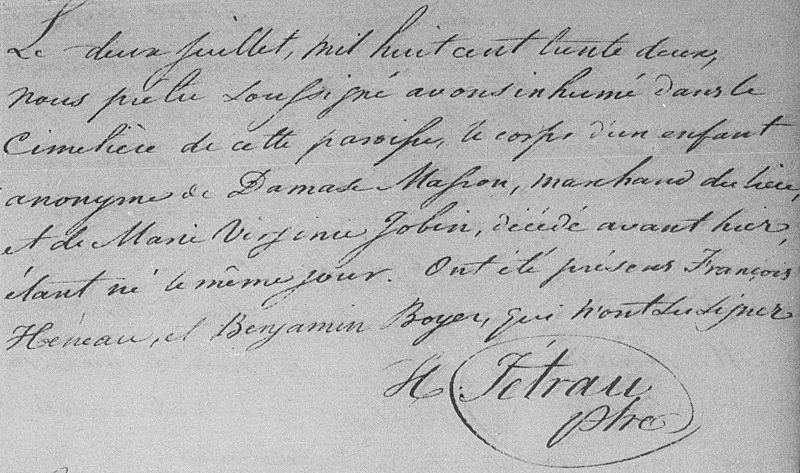 Le deux juillet, mil huit cent trente deux,
nous prêtre Soussigné avons inhumé dans le
Cimetière de cette paroisse, le corps d'un enfant
anonyme de Damase Masson, marchand du lieu,
et de Marie Virginie Jobin, décédé avant hier,
étant né le même jour. Ont été présens François
Héneau, et Benjamin Boyer, qui n'ont su signer
H. Tétrau
ptre